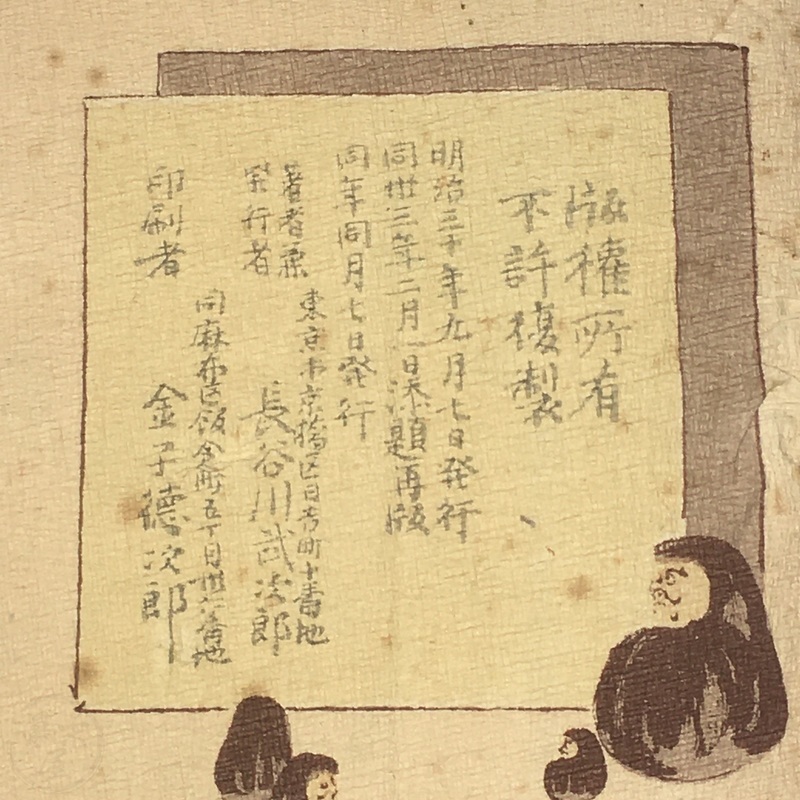 版權所有
不許複製
明治三十年九月七日発行
同卅三年二月一日添題再版
同年同月七日発行
著者兼
発行者
東京市京橋区日吉町十番地
長谷川武次郎
同麻布区飯倉町五丁目卅六番地
印刷者
金子德次郎